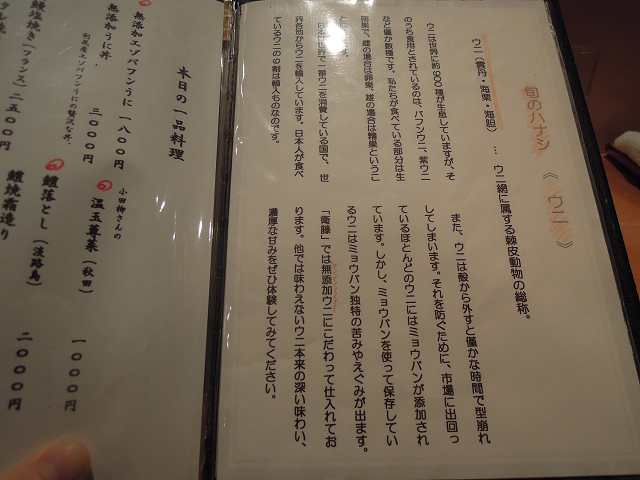 旬のハナシ 《 ウニ 》
ウニ(雲丹・海栗・海胆) … ウニ綱に属する棘皮動物の総称。
ウニは世界に約900種が生息していますが、そ
のうち食用とされているのは、バフンウニ、紫ウニ
など僅か数種です。私たちが食べている部分は生
殖巣で、雌の場合は卵巣、雄の場合は精巣というこ
日本は世界で一番ウニを消費している国で、世
界各地からウニを輸入しています。日本人が食べ
ているウニの9割は輸入ものなのです。
また、ウニは殻から外すと僅かな時間で型崩れ
してしまいます。それを防ぐために、市場に出回っ
ているほとんどのウニにはミョウバンが添加され
ています。しかし、ミョウバンを使って保存してい
るウニはミョウバン独特の苦みやえぐみが出ます。
「衛藤」では無添加ウニにこだわって仕入れてお
ります。他では味わえないウニ本来の深い味わい、
濃厚な甘みをぜひ体験してみてください。
本日の一品料理
無添加エゾバフンうに 一八〇〇円
無添加うに丼 三〇〇〇円
利尻産エゾバフンうにの贅沢な丼。
小田柳さんの
温玉蓴菜(秋田) 一〇〇〇円
鱧落とし(淡路島) 二〇〇〇円
鱧焼霜造り 二〇〇〇円
鰻塩焼き(フランス) 二五〇〇円